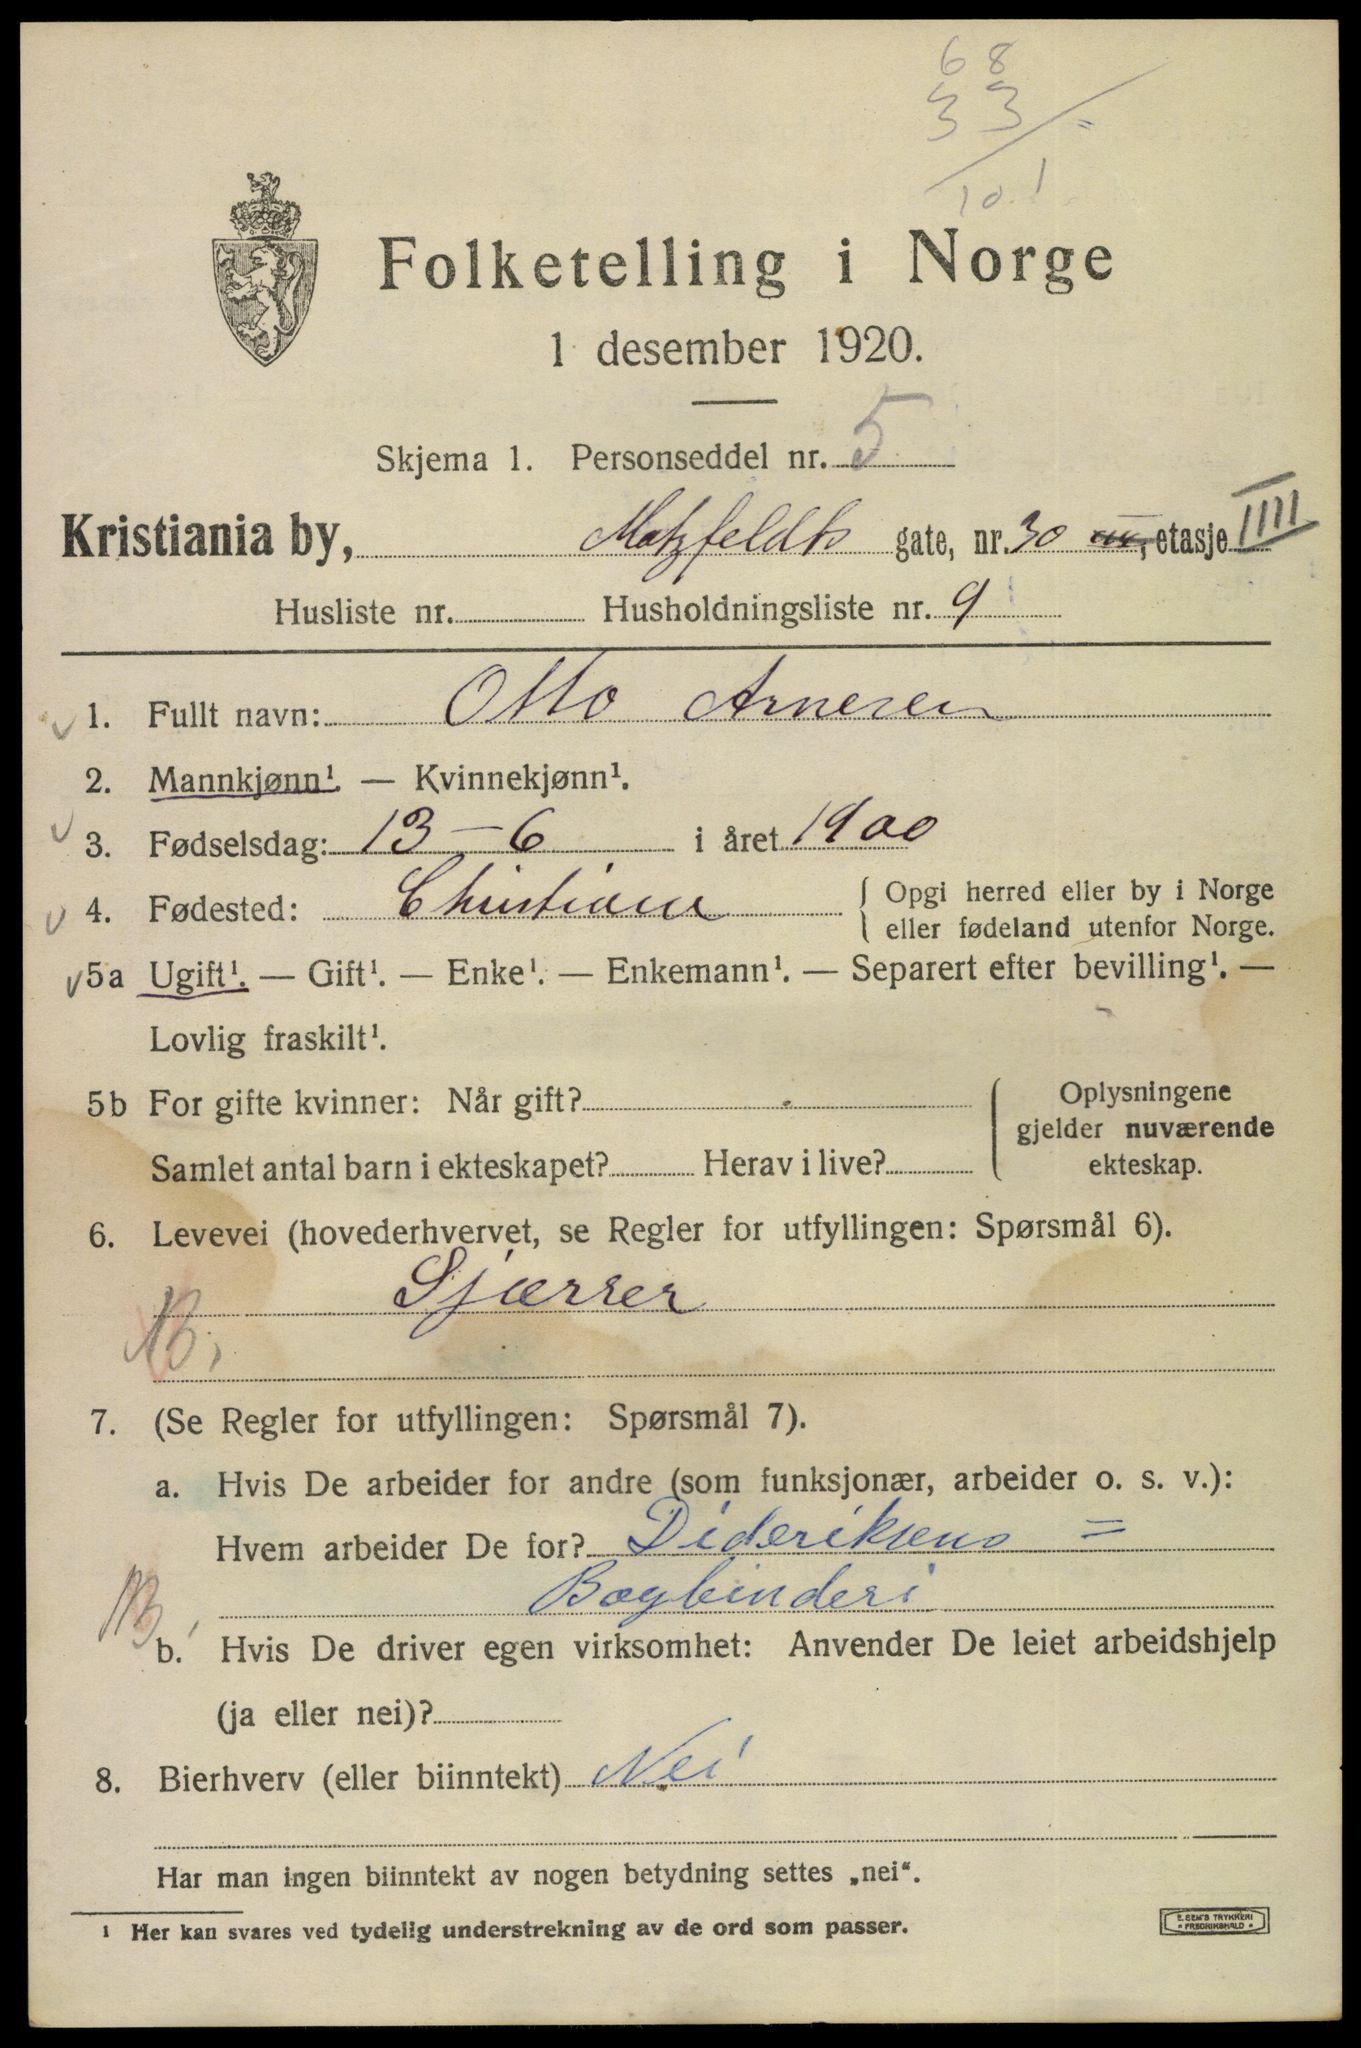 68
33
10.1
Folketelling i Norge
1 desember 1920.
Skjema 1. Personseddel nr. 5
Kristiania by, Motzfeldts gate, nr. 30 III, etasje IIII
Husliste nr. Husholdningsliste nr. 9
1. Fullt navn: Otto Arnesen
2. Mannkjønn¹. — Kvinnekjønn¹.
3. Fødselsdag: 13 – 6 i året 1900
4. Fødested: Christiania { Opgi herred eller by i Norge
eller fødeland utenfor Norge.
5a Ugift¹. — Gift¹. — Enke¹. — Enkemann¹. — Separert efter bevilling¹. —
Lovlig fraskilt¹.
5b For gifte kvinner: Når gift? Oplysningene
gjelder nuværende
Samlet antal barn i ekteskapet? Herav i live? ekteskap.
6. Levevei (hovederhvervet, se Regler for utfyllingen: Spørsmål 6).
B.
7. (Se Regler for utfyllingen: Spørsmål 7).
a. Hvis De arbeider for andre (som funksjonær, arbeider o. s. v.):
Hvem arbeider De for? Dideriksens =
Bogbinderi
b. Hvis De driver egen virksomhet: Anvender De leiet arbeidshjelp
(ja eller nei)?
8. Bierhverv (eller biinntekt) Nei
Har man ingen biinntekt av nogen betydning settes „nei“.
¹ Her kan svares ved tydelig understrekning av de ord som passer.
E. SEM'S TRYKKERI
FREDRIKSHALD